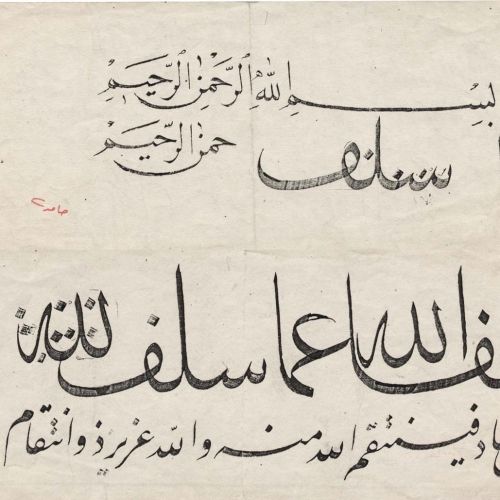 بِسْمِ اللهِ الرَّحْمٰنِ الرَّحِيمِ
حمٰنِ الرَّحِيمِ
سلف
حامد
فا الله عما سلف لله
اد فينتقم الله منه والله عزيز ذو انتقام